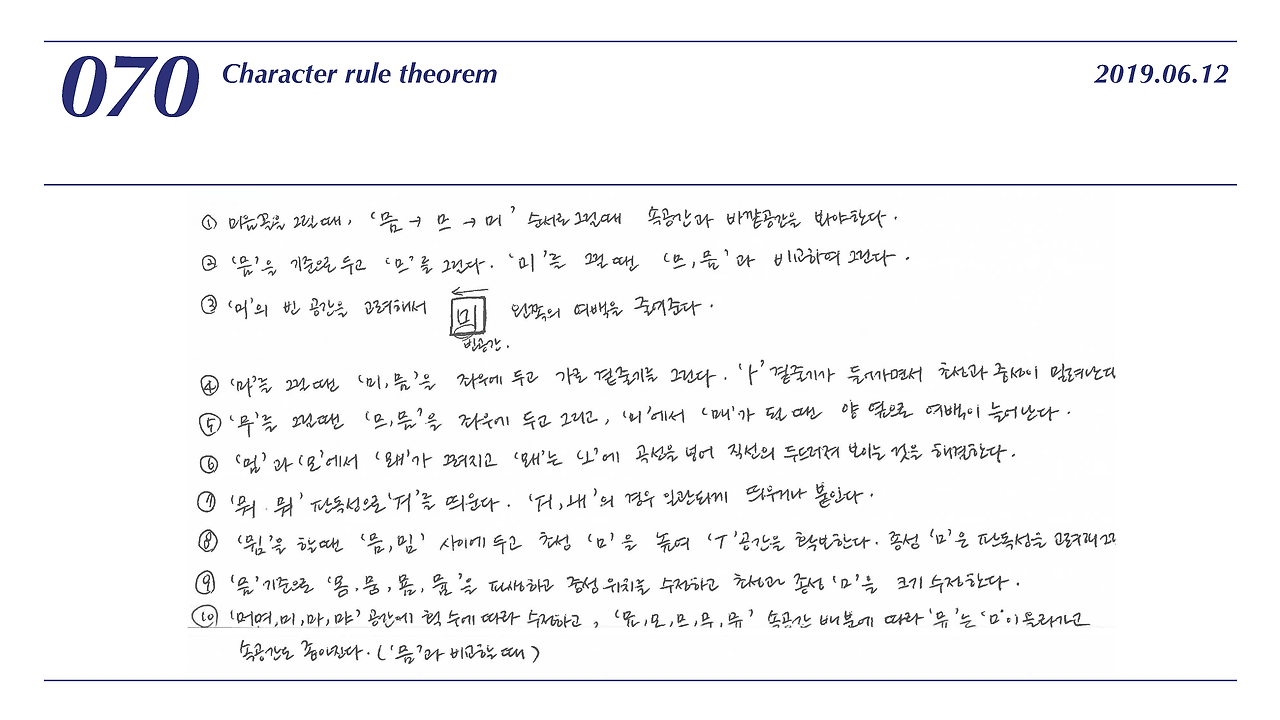 070 Character rule theorem 2019.06.12
① 미음꼴을 그릴때, '믐 → 므 → 미' 순서로 그릴때 속공간과 바깥공간을 봐야한다.
② '믐'을 기준으로 두고 '므'를 그린다. '미'를 그릴 땐 '므, 믐'과 비교하여 그린다.
③ '미'의 빈 공간을 고려해서 미 왼쪽의 여백을 줄여준다.
빈공간.
④ '마'를 그릴 땐 '미, 믐'을 좌우에 두고 가로 곁줄기를 그린다. 'ㅏ' 곁줄기가 들어가면서 초성과 중성이 밀려난다
⑤ '무'를 그릴땐 '므, 믐'을 좌우에 두고 그리고, '미'에서 '매'가 될 땐 양 옆으로 여백이 늘어난다.
⑥ '멈'과 '모'에서 '뫠'가 그려지고 '뫠'는 'ㅗ'에 곡선을 넣어 직선의 두드러져 보이는 것을 해결한다.
⑦ '뭐. 뭐' 판독성으로 'ㅓ'를 띄운다. 의 경우 일관되게 띄우거나 붙인다.
⑧ '뮘'을 할때 '믐, 밈' 사이에 두고 초성 'ㅁ'을 높여 'ㅜ'공간을 확보한다. 종성 'ㅁ'은 판독성을 고려해
⑨ '믐'기준으로 '몸, 뭄, 묨, 뮴'을 파생하고 중성 위치를 수정하고 초성과 종성 'ㅁ'을 크기 수정한다.
⑩ '머, 며, 미, 마, 먀' 공간에 획 수에 따라 수정하고, '묘, 모, 므, 무, 뮤' 속공간 배분에 따라 '뮤'는 'ㅁ'이 올라가고
속공간도 좁아진다. ('믐'과 비교할때)